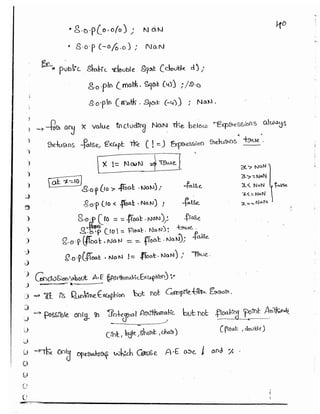 40
• S.o.p(0.0/0) ; NaN
• S.o.p (-0/0.0) ; NaN
Ex:- public static double Sqrt (double d) ;
S.o.pln (math. Sqrt (4)) ; /2.0
S.o.pln (math. Sqrt (-4)) ; NaN.
→ for any x value including NaN the below Expressions always
returns false, Except the ( != ) Expression returns true.
X != NaN ⇒ True
at x=10
x > NaN
x >= NaN
x < NaN
x <= NaN
x == NaN
false
S.o.p (10 > float.NaN) ; false
S.o.p (10 < float.NaN) ; false
S.o.p (10 == float.NaN) ; false
S.o.p (10 != Float.NaN) ; true.
S.o.p (float.NaN == float.NaN) ; false
S.o.p (float.NaN != float.NaN) ; True.
Conclusion about A.E (ArithmaticException) :-
→ It is RuntimeException but not CompileTime Error.
→ possible only in Integral Arithmatic but not floating point Arithmetic
(int, byte, short, char) (float, double)
→ The only operators which Cause A.E are / and %.